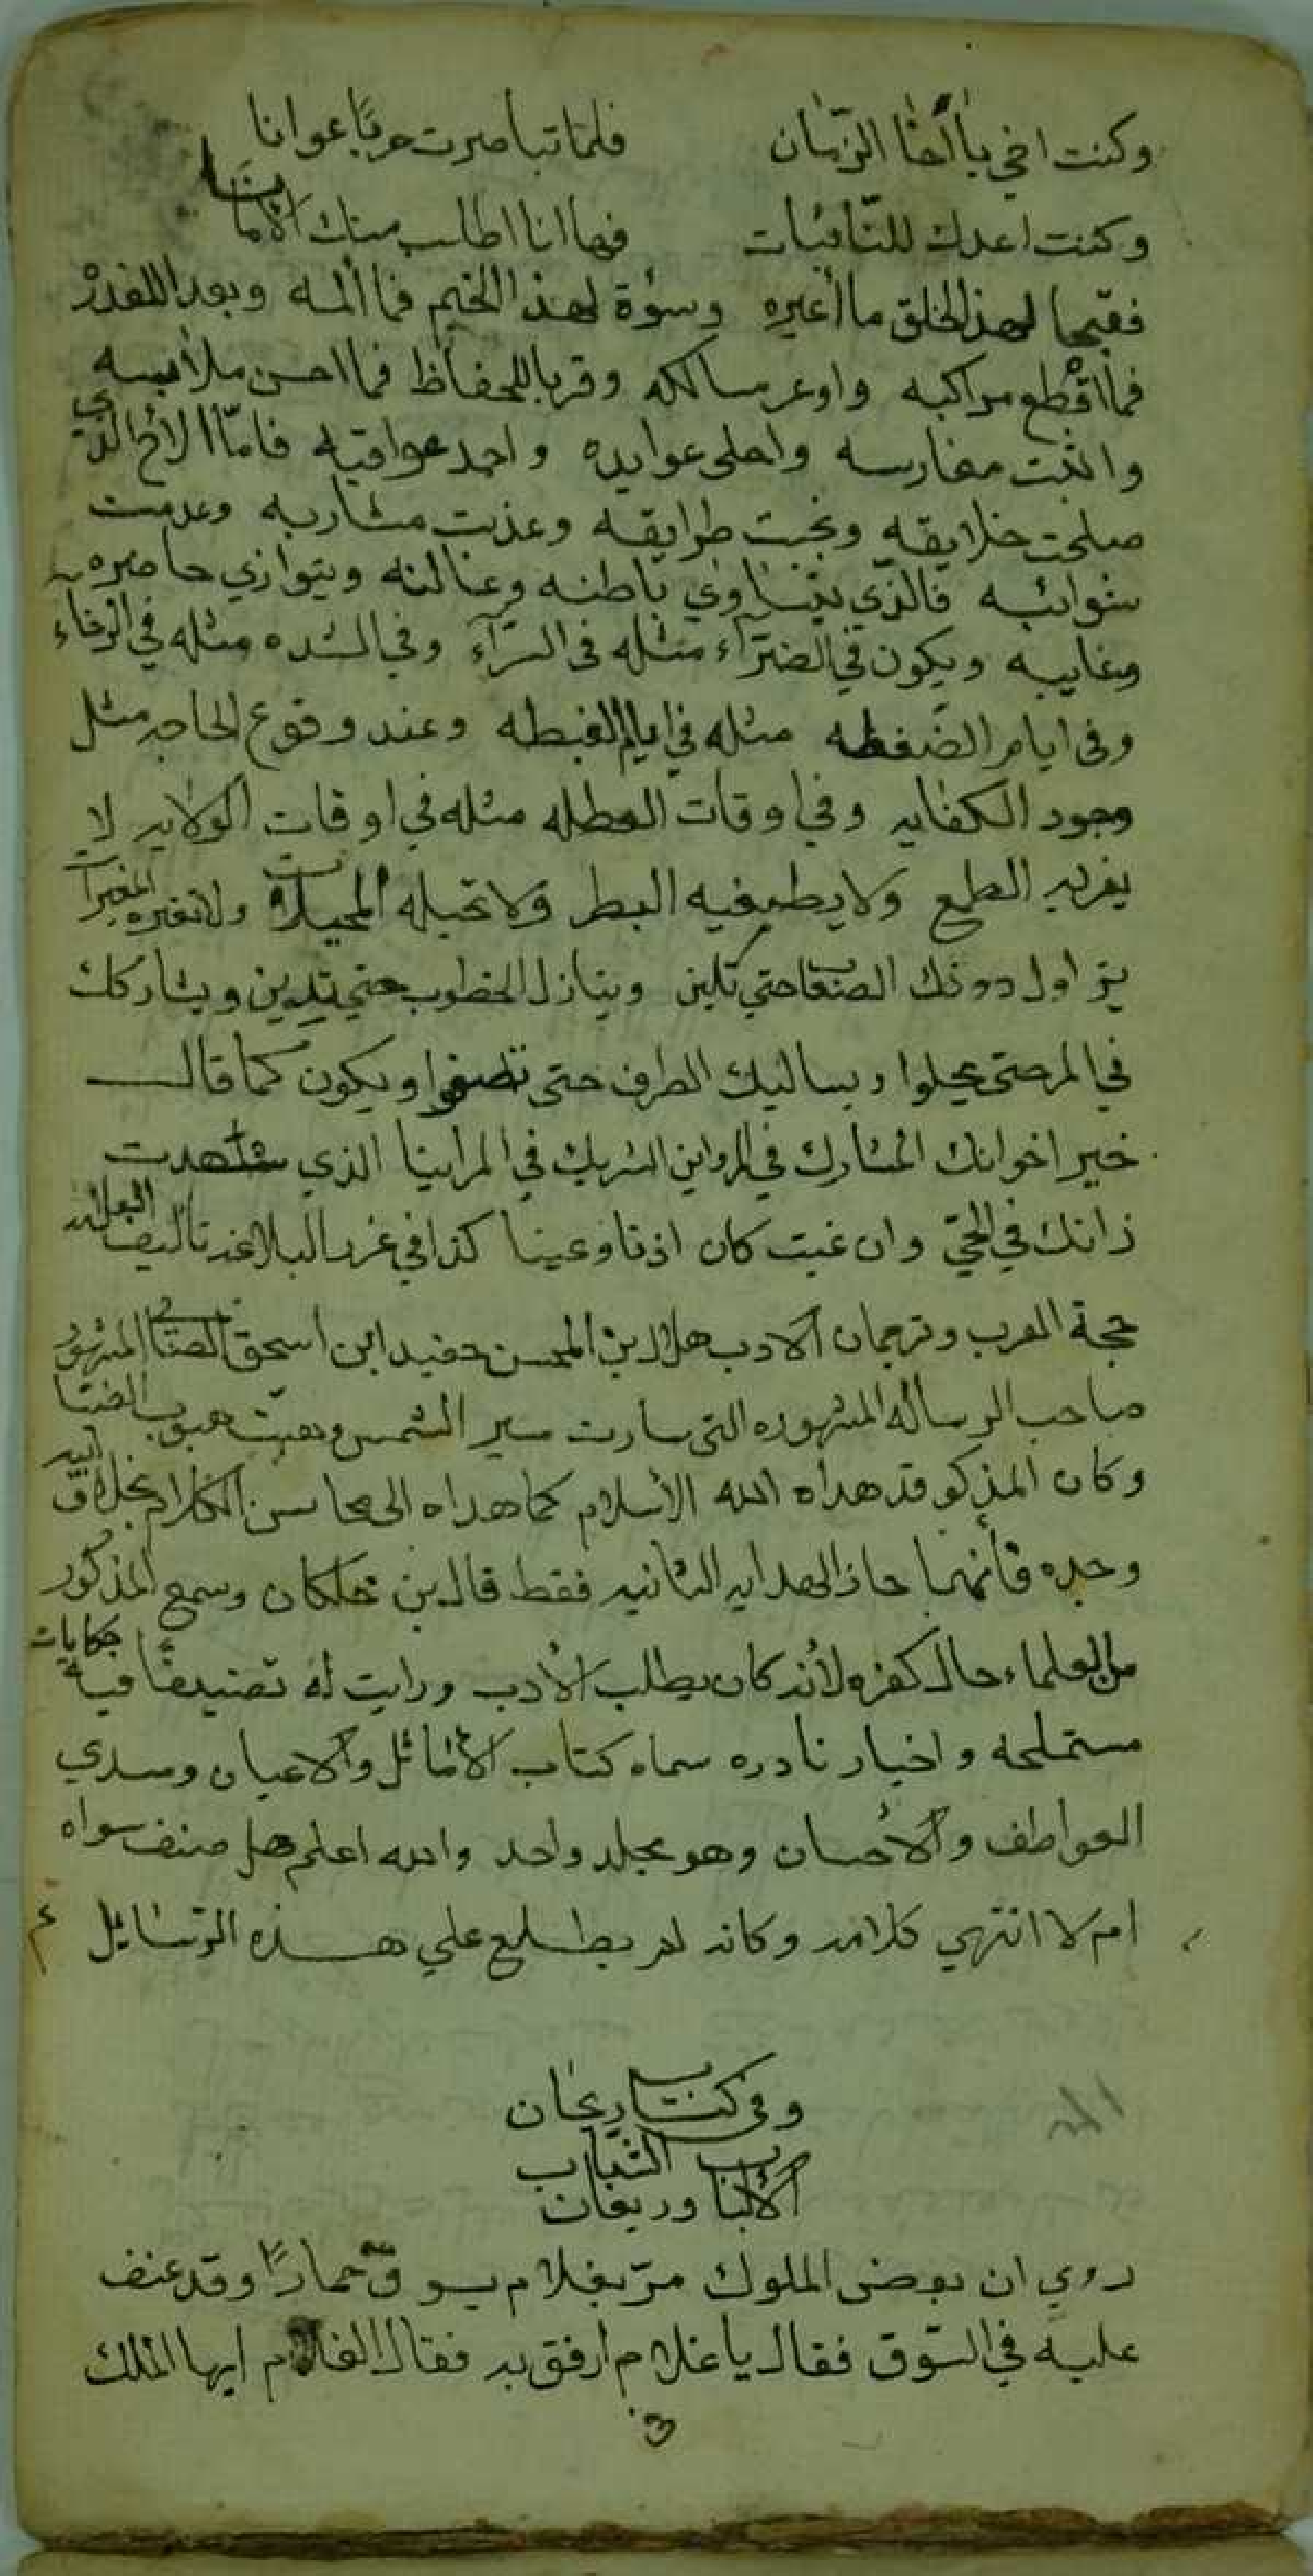 وكنت اخي باخا الزمان فلما نبا صرت حربا عوانا
وكنت اعدك للنائبات فها انا اطلب منك الامانا
فقبحا لهذا الخلق ما اعيره وسوة لهذا الخيم فما المه وبعدا للغدر
فما اقطع مراكبه واوعر مسالكه وقربا للحفاظ فما احسن ملابسه
واثبت مغارسه واحلى عوايده واحمد عواقبه فامّا الاخ الذي
صلحت خلايقه ونجبت طرايقه وعذبت مشاربه وعدمت
شوائبه فالذي يتساوي باطنه وعالنه ويتوازي حاضره
وغايبه ويكون في الضرّآء مثله في السرّآء وفي الشده مثله في الرخاء
وفي ايام الضغطه مثله في ايام الغبطه وعند وقوع الحاجه مثل
وجود الكفايه وفي اوقات العطله مثله في اوقات الولايه لا
يغريه الطمع ولا يطغيه البطر ولا تحيله المحيلات ولا تغيره المغيرات
يزاول دونك الصعاب حتي تلين وينازل الخطوب حتي تدين ويشاركك
في المر حتى يحلوا ويساليك الطرف حتى تصفوا ويكون كما قال
خير اخوانك المشارك في المر واين الشريك في المر اينا الذي شاهدت
ذانك في الحيّ وان غبت كان اذنا وعينا كذا في غرر البلاغه تاليف العلامه
حجة العرب وترجمان الادب هلال بن المحسن حفيد ابن اسحق الصابي المشهور
صاحب الرساله المشهوره التى سارت سير الشمس وهبّت هبوب الصبا
وكان المذكور قد هداه الله الاسلام كما هداه الى محاسن الكلام بخلاف ابيه
وجده فأنهما حاذ الهدايه الثانيه فقط قال بن خلكان وسمع المذكور
من العلماء حال كفره لأنه كان يطلب الأدب ورايت له تصنيفا فيه حكايات
مستملحه واخبار نادره سماه كتاب الأماثل والاعيان ومسدي
العواطف والأحسان وهو مجلد واحد والله اعلم هل صنف سواه
ام لا انتهي كلامه وكانه لم يطلع علي هذه الرسايل
وفي كتاب ريحان
الالباب وريعان الشباب
روي ان بعض الملوك مرّ بغلام يسوق حمارًا وقد عنف
عليه في السّوق فقال يا غلام ارفق به فقال الغلام ايها الملك